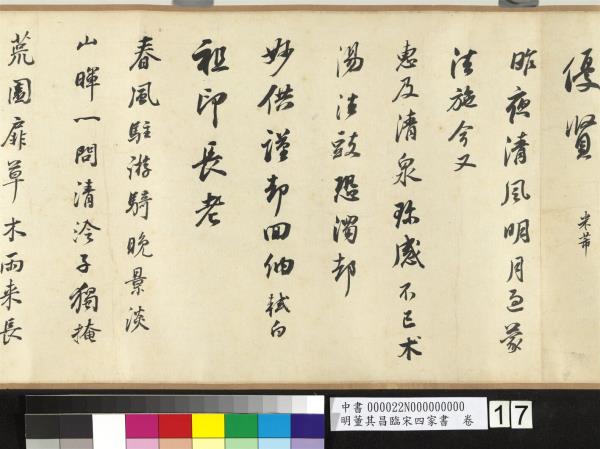 優賢
米芾
昨夜清風明月過蒙
法施今又
惠及清泉珍感不已术
湯法豉恐濁却
妙供謹却回納軾白
祖印長老
春風駐游騎晚景淡
山暉一問清泠子獨掩
荒園扉草木雨来長
中書 000022N000000000
明董其昌臨宋四家書 卷
17